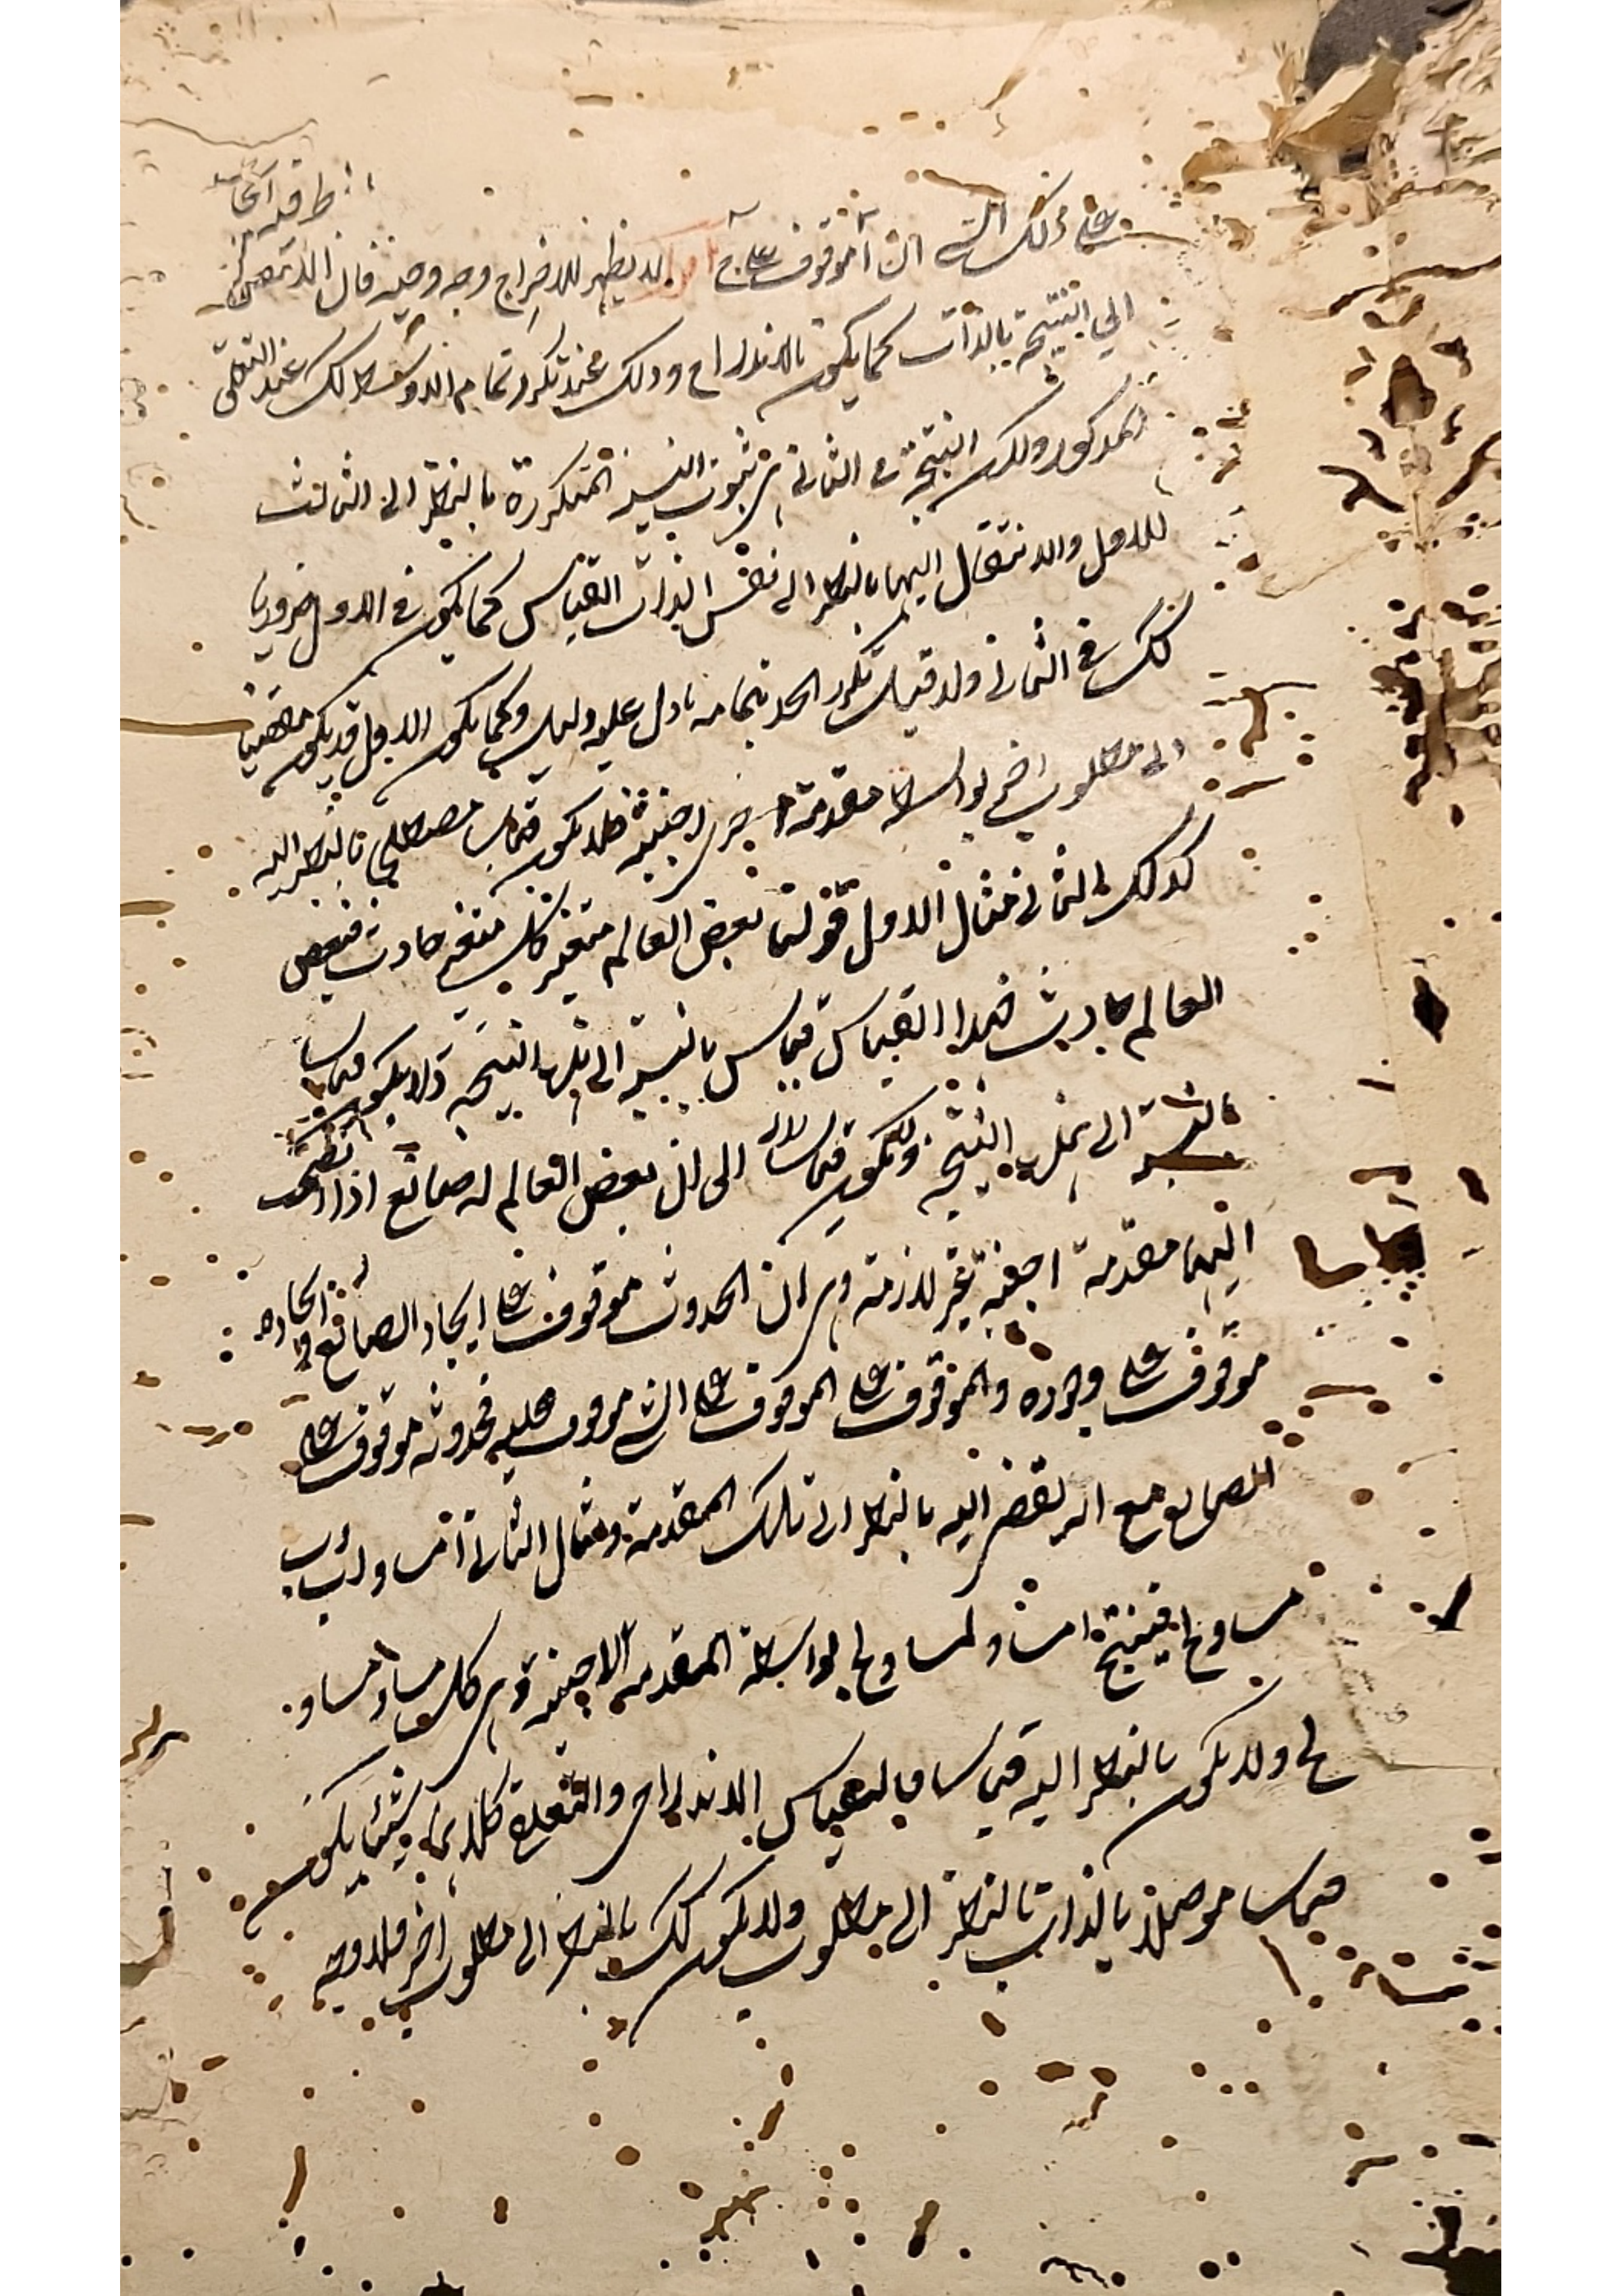 على ذلك الشئ ان آ موقوف على ج لا يظهر للاخراج وجه وجيه فان الانتقال
الى النتيجة بالذات كما يكون بالاندراج وذلك عند تكرر تمام الاوسط كذلك عند التعلق
المذكور ولكن النتيجة في الثاني هي ثبوت النسبة المتكررة بالنظر الى الثالث
للاول والانتقال اليها بالنظر الى نفس الذات القياس كما يكون في الاول ضروريا
كك في الثاني ولا قياس تكرر الحد بتمامه ما دل عليه دليل وكما يكون الاول قد يكون مفضيا
الى مطلوب اخر بواسطة مقدمة اخرى اجنبية فلا يكون قياسا مصطلحا بالنظر اليه
كذلك الثاني مثال الاول قولنا بعض العالم متغير وكل متغير حادث فبعض
العالم حادث فهذا القياس قياس بالنسبة الى تلك النتيجة ولا يكون قياسا
بالنسبة الى تلك النتيجة ويكون قياسا الى ان بعض العالم له صانع اذا انضمت
اليها مقدمة اجنبية غير لازمة وهي ان الحدوث موقوف على ايجاد الصانع وايجاده
موقوف على وجوده والموقوف على الموقوف على الشئ موقوف عليه فحدوثه موقوف على
الصانع مع انه يفضي اليه بالنظر الى تلك المقدمة ومثال الثاني آ مساو لب وب
مساو لج فينتج ا مساو لمساو لج بواسطة المقدمة الاجنبية وهي كل مساو لمساو
لج ولا يكون بالنظر اليه قياسا فالقياس الاندراجي والتعلقي كلاهما شيئا يكون
قياسا موصلا بالذات بالنظر الى مطلوب ولا يكون كك بالنظر الى مطلوب اخر فلا وجه